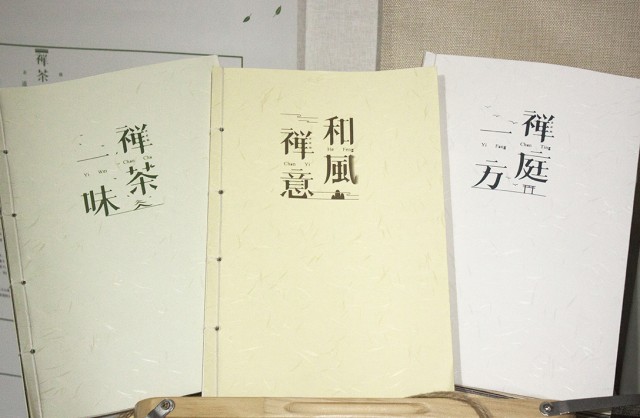 禅茶
Chan Cha
一味
Yi Wei
和風
He Feng
禅意
Chan Yi
禅庭
Chan Ting
一方
Yi Fang
禅茶